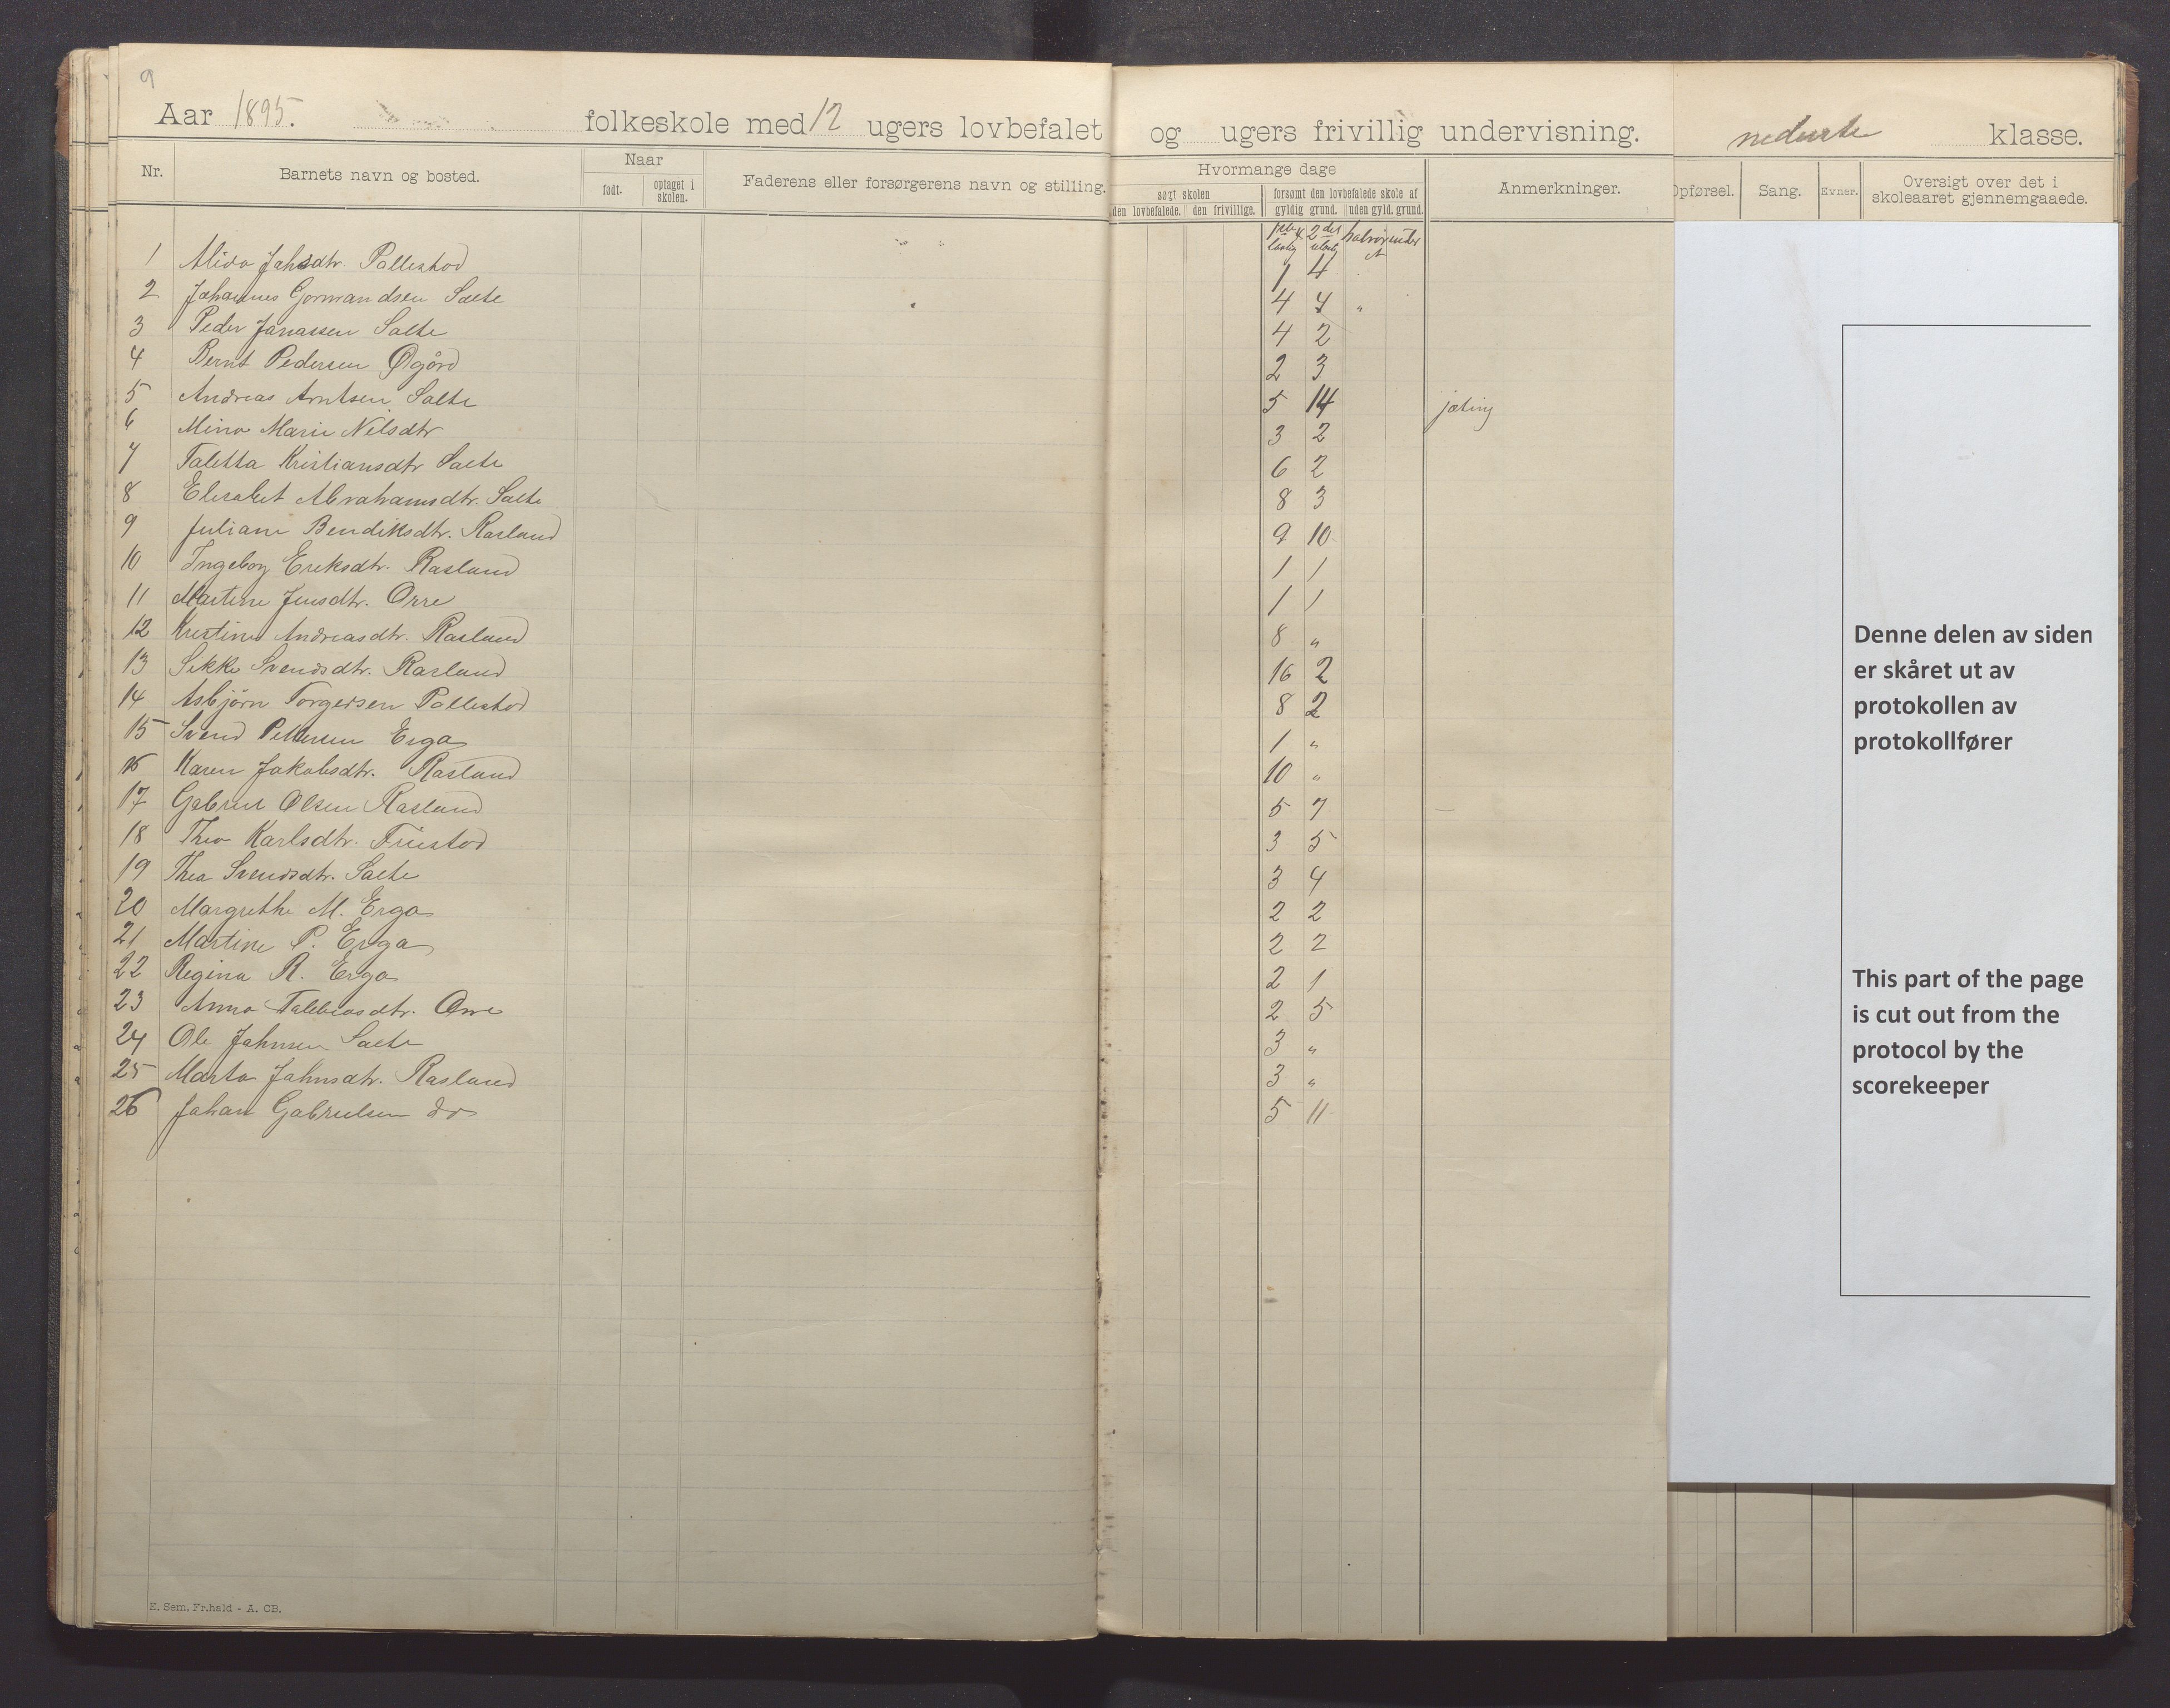 9
Aar 1895. folkeskole med 12 ugers lovbefalet og ugers frivillig undervisning. nederste klasse.
Nr. Barnets navn og bosted. Naar født. optaget i skolen. Faderens eller forsørgerens navn og stilling. Hvormange dage søgt skolen den lovbefalede. den frivillige. forsømt den lovbefalede skole af gyldig grund. uden gyld. grund. Anmerkninger. Opførsel. Sang. Evner. Oversigt over det i skoleaaret gjennemgaaede.
1 Alida Jahsdtr. Pollestad 1 4
2 Johannes Gormandsen Salte 4 4 "
3 Peder Janassen Salte 4 2
4 Bernt Pedersen Øgård 2 3
5 Andreas Arntsen Salte 5 14 jæting
6 Mina Marie Nilsdtr 3 2
7 Taletta Kristiansdtr Salte 6 2
8 Elisabet Abrahamsdtr. Salte 8 3
9 Juliane Bendiksdtr. Rasland 9 10
10 Ingeborg Eriksdtr. Rasland 1 1
11 Martine Jensdtr. Orre 1 1
12 Kristine Andreasdtr. Rasland 8 "
13 Sikke Svendsdtr. Rasland 16 2
14 Asbjørn Torgersen Pollestad 8 2
15 Svend Pettersen Erga 1 "
16 Karen Jakobsdtr. Rasland 10 "
17 Gabriel Olsen Rasland 5 7
18 Thea Karlsdtr. Friestad 3 5
19 Thea Svendsdtr. Salte 3 4
20 Margrethe M. Erga 2 2
21 Martine P. Erga 2 2
22 Regina R. Erga 2 1
23 Anna Tallelasdtr. Orre 2 5
24 Ole Jahnsen Salte 3 "
25 Marta Jahnsdtr. Rasland 3 "
26 Johan Gabrielsen do 5 11
Denne delen av siden
er skåret ut av
protokollen av
protokollfører
This part of the page
is cut out from the
protocol by the
scorekeeper
E. Sem. Fr.hald - A. CB.